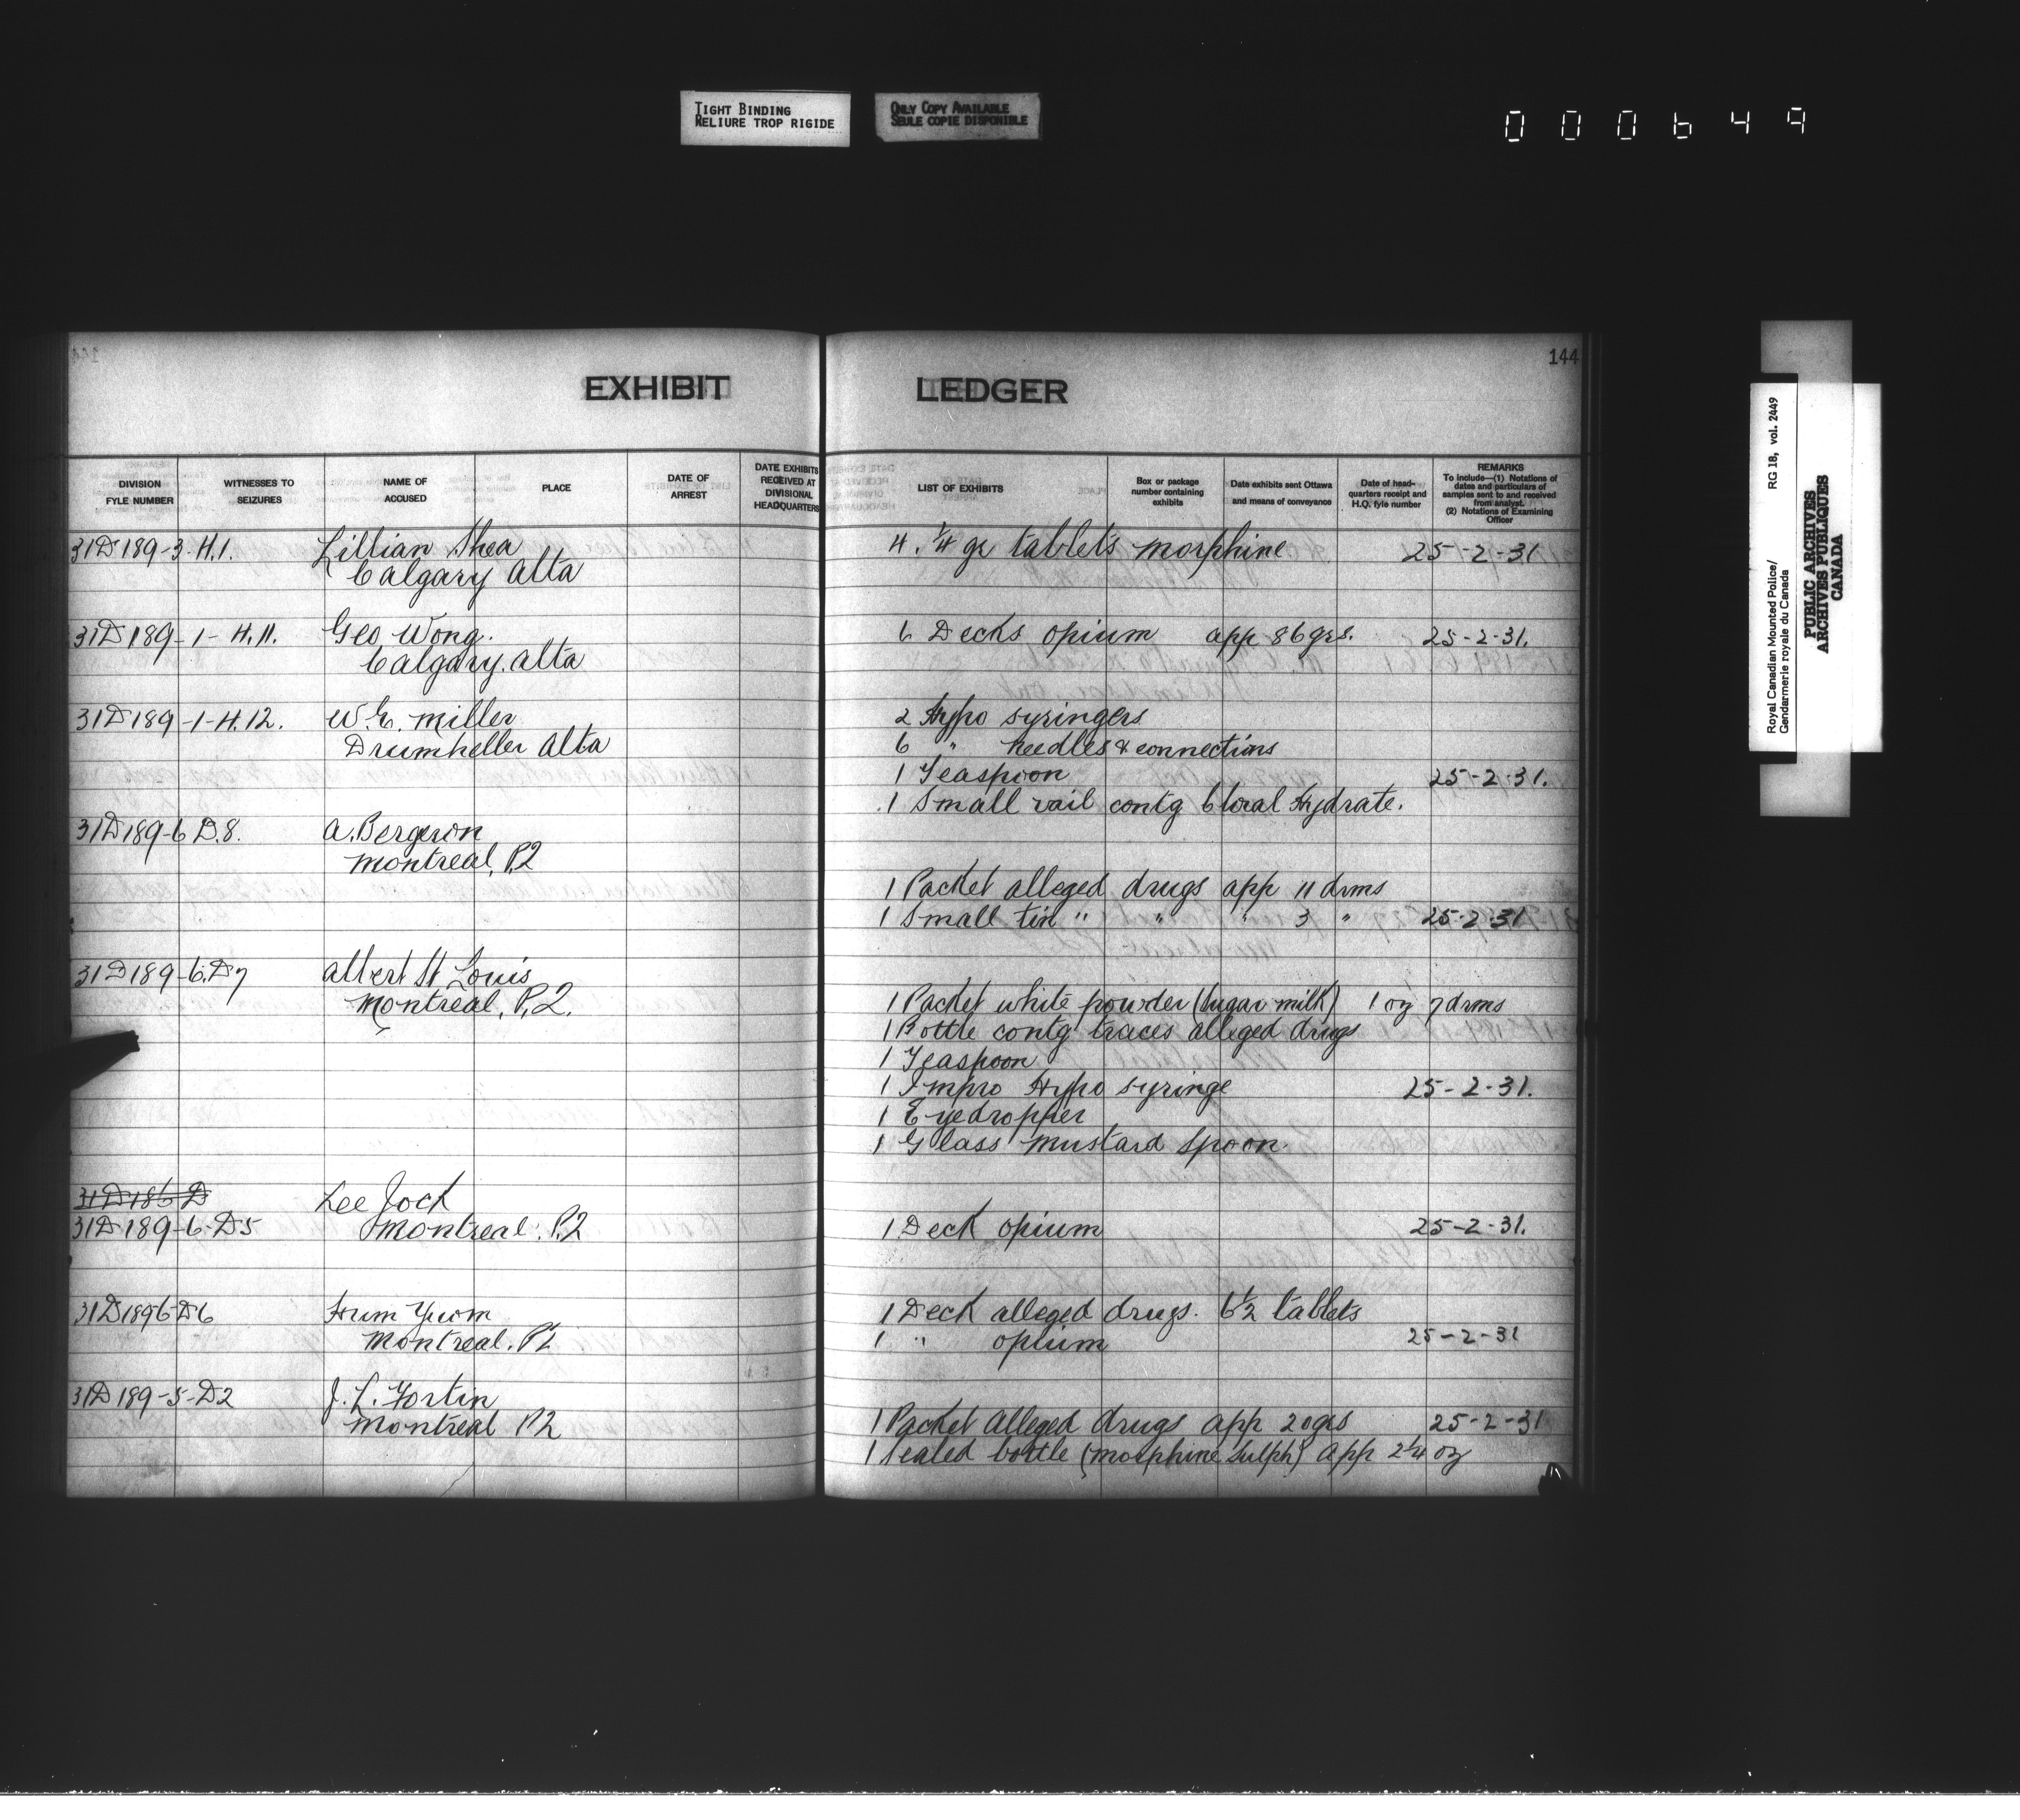 TIGHT BINDING
RELIURE TROP RIGIDE
ONLY COPY AVAILABLE
SEULE COPIE DISPONIBLE
000649
144
EXHIBIT LEDGER
DIVISION
FYLE NUMBER
WITNESSES TO
SEIZURES
NAME OF
ACCUSED
PLACE
DATE OF
ARREST
DATE EXHIBITS
RECEIVED AT
DIVISIONAL
HEADQUARTERS
LIST OF EXHIBITS
Box or package
number containing
exhibits
Date exhibits sent Ottawa
and means of conveyance
Date of head-
quarters receipt and
H.Q. fyle number
REMARKS
To include—(1) Notations of
dates and particulars of
samples sent to and received
from analyst.
(2) Notations of Examining
Officer
31D189-3-H.1. Lillian Shea 4. 1/4 gr tablets morphine 25-2-31
Calgary Alta
31D189-1-H.11. Geo Wong. 6 Decks opium app 86 grs. 25-2-31.
Calgary. Alta
31D189-1-H.12. W.E. Miller 2 Hypo syringers
Drumheller Alta 6 " needles & connections
1 Teaspoon 25-2-31.
1 Small vail contg Cloral Hydrate.
31D189-6 D.8. A. Bergeron
Montreal, P.Q
1 Packet alleged drugs app 11 drms
1 Small tin " " " 3 " 25-2-31
31D189-6.D7 Albert St Louis
Montreal, P.Q. 1 Packet white powder (sugar milk) 1 oz 7 drms
1 Bottle contg traces alleged drugs
1 Teaspoon
1 Impro Hypo syringe 25-2-31.
1 Eyedropper
1 Glass mustard spoon.
31D186-D Lee Jock
31D189-6-D5 Montreal. P.Q 1 Deck opium 25-2-31.
31D1896-D6 Hum Yuom 1 Deck alleged drugs. 6 1/2 tablets
Montreal. P.Q 1 " opium 25-2-31
31D189-5-D2 J. L. Fortin
Montreal P.Q 1 Packet alleged drugs app 20 grs 25-2-31
1 Sealed bottle (morphine sulph) app 2 1/4 oz
Royal Canadian Mounted Police/ RG 18, vol. 2449
Gendarmerie royale du Canada
PUBLIC ARCHIVES
ARCHIVES PUBLIQUES
CANADA